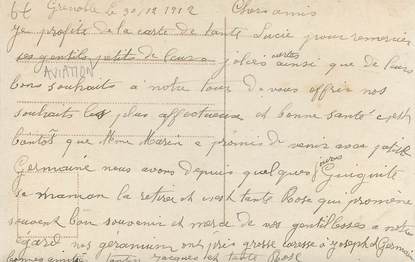 66 Grenoble le 30/12 1912 Chers amis
Je profite de la carte de tante Lucie pour remercier
ses gentils petits de leurs jolies cartes ainsi que de leurs
AVIATION
bons souhaits à notre tour de vous offrir nos
souhaits les plus affectueux et bonne santé c'est
bientôt que Mme Marie a promis de venir avec petite
Germaine nous avons depuis quelques jours Guiguite
sa maman la retire et c'est tante Rose qui promène
souvent bon souvenir et merci de vos gentillesses a notre
égard nos géranium ont pris grosse caresse à Joseph et Germaine
tante Jacques et tante Rose